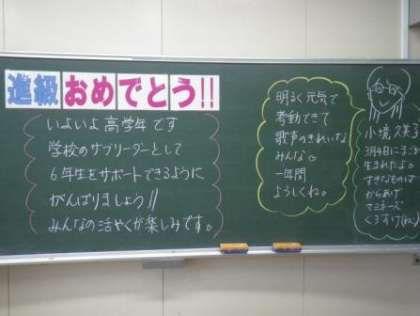 進級おめでとう!!
いよいよ高学年です
学校のサブリーダーとして
6年生をサポートできるように
がんばりましょう!!
みんなの活やくが楽しみです。
明るく元気で
行動できて
歌声のきれいな
みんな。
一年間
よろしくね。
3月4日にまごが
生まれたよ
すきなものは
からあげ
マヨネーズ